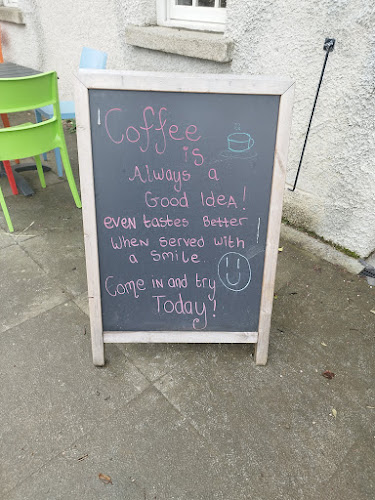 Coffee
is
Always a
Good Idea!
even tastes Better
when served with
a smile.
Come in and try
Today!